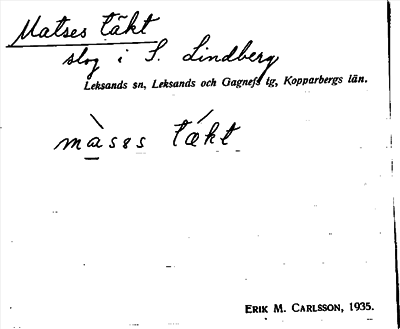 Matses täkt
slog i S. Lindberg
Leksands sn, Leksands och Gagnefs tg, Kopparbergs län.
màsɛs tǽkt
ERIK M. CARLSSON, 1935.